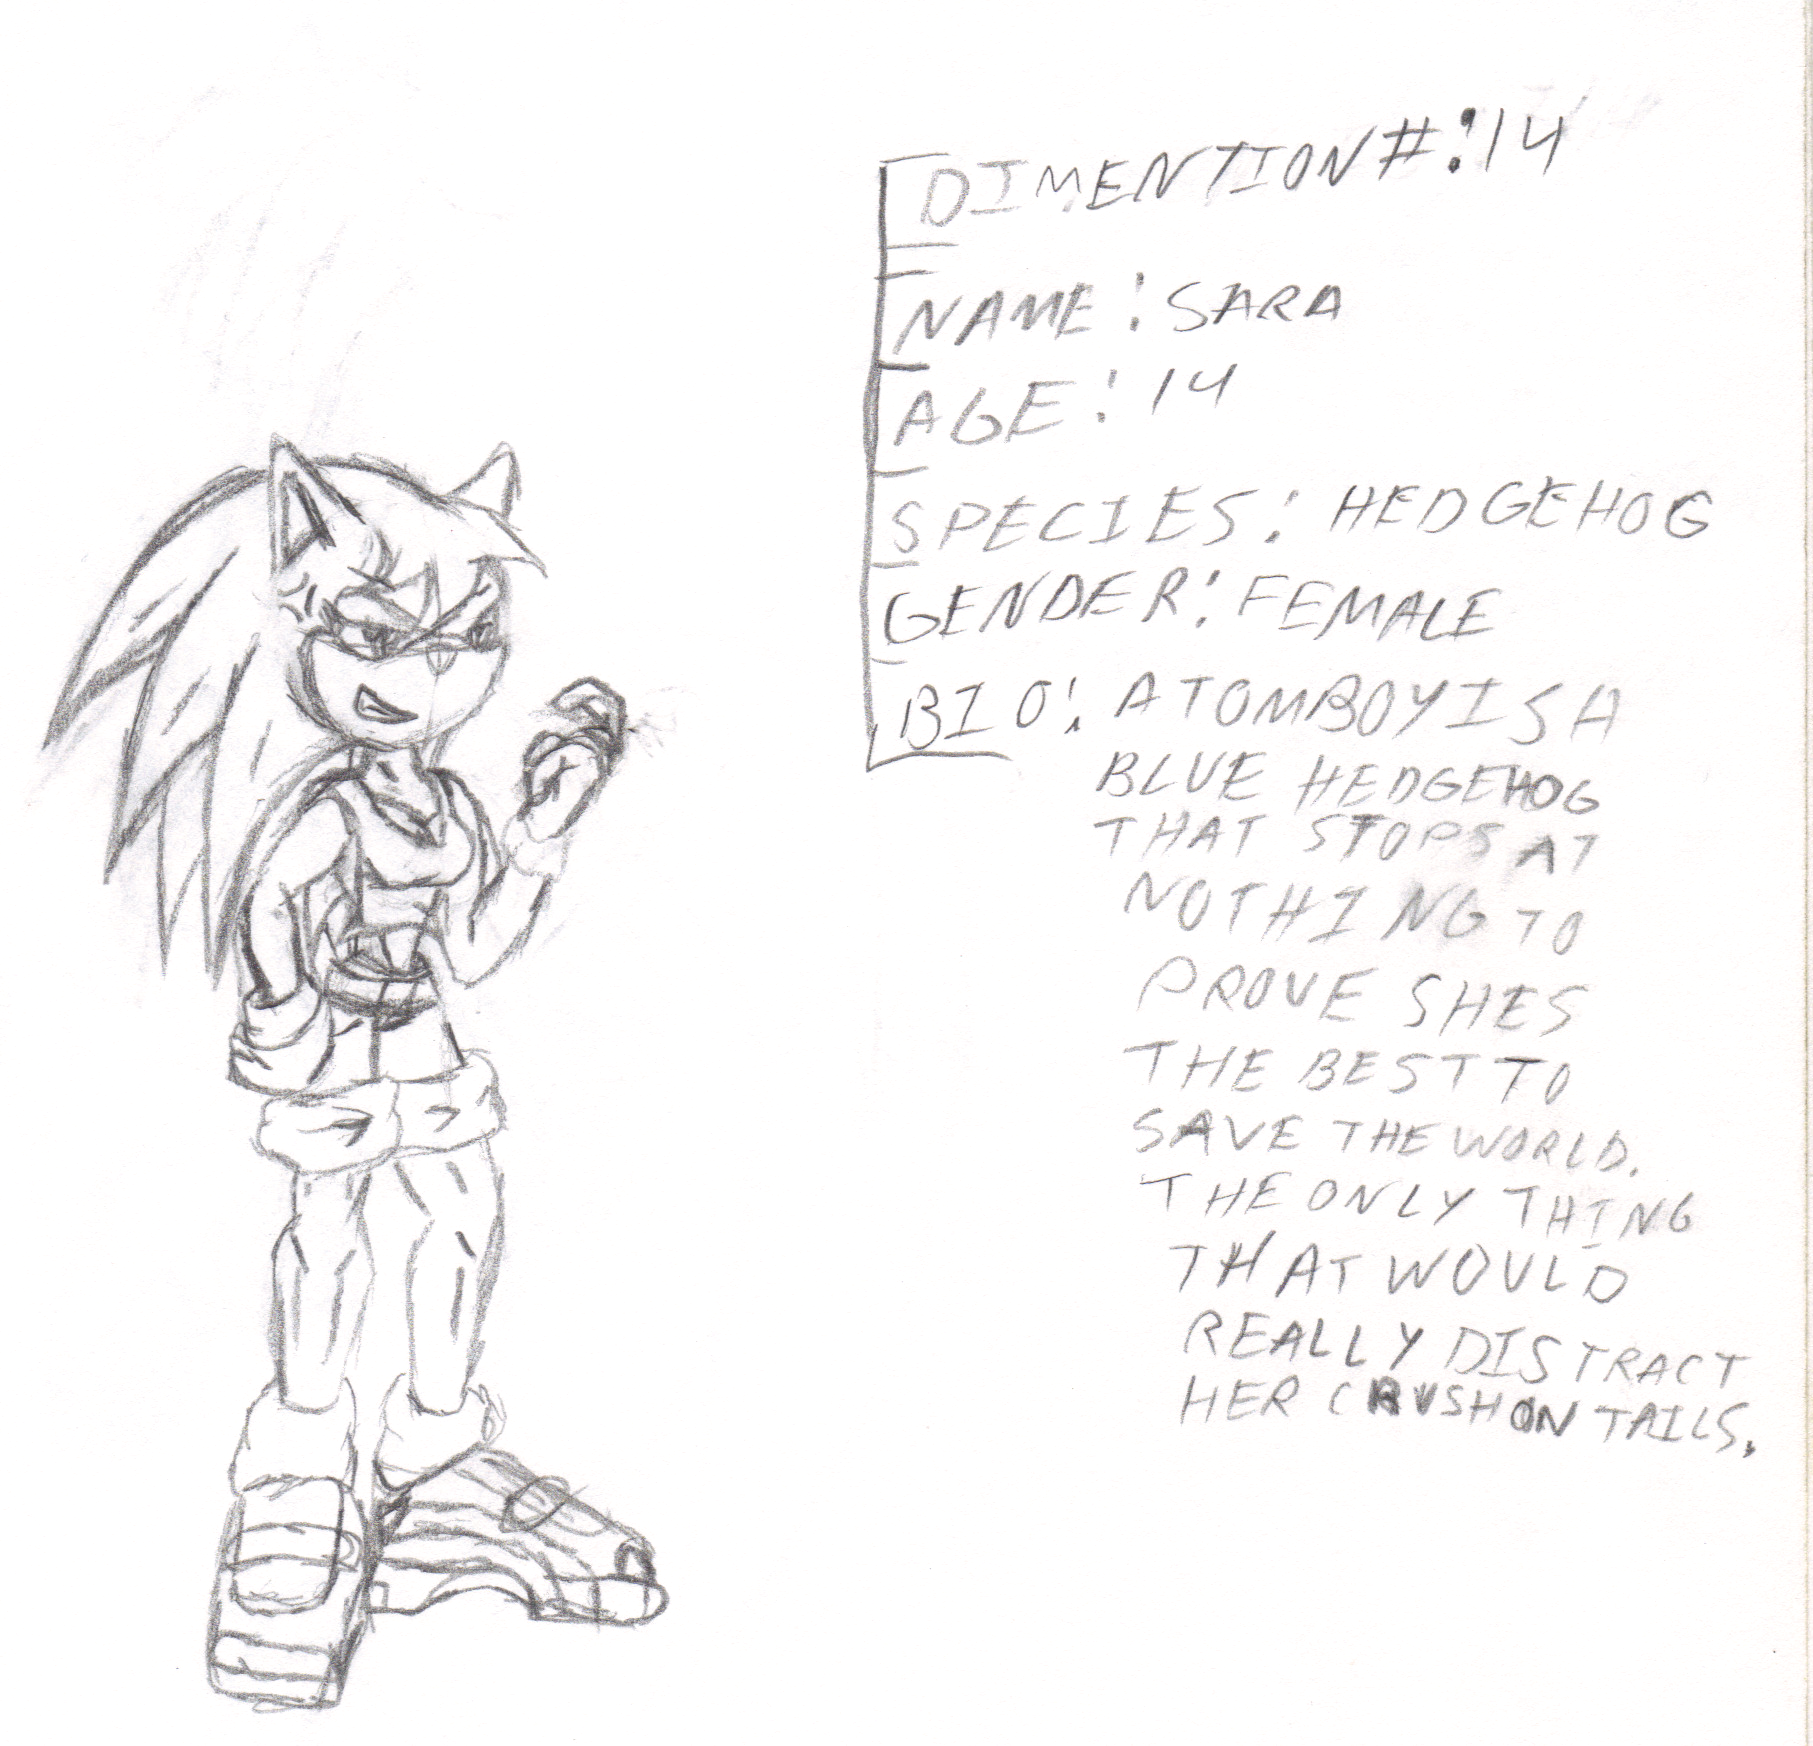 DIMENTION#:14
NAME: SARA
AGE: 14
SPECIES: HEDGEHOG
GENDER: FEMALE
BIO: A TOMBOYISH
BLUE HEDGEHOG
THAT STOPS AT
NOTHING TO
PROVE SHES
THE BEST TO
SAVE THE WORLD.
THE ONLY THING
THAT WOULD
REALLY DISTRACT
HER CRUSH ON TAILS.